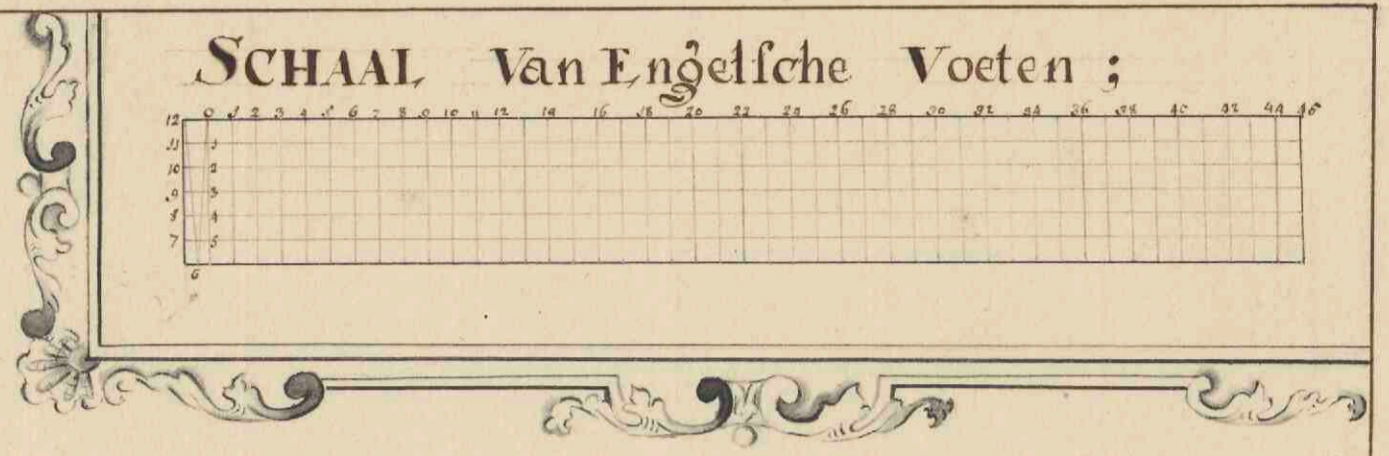 SCHAAL Van Engelsche Voeten ;
12 0 1 2 3 4 5 6 7 8 9 10 11 12 14 16 18 20 22 24 26 28 30 32 34 36 38 40 42 44 46
11 1
10 2
9 3
8 4
7 5
6